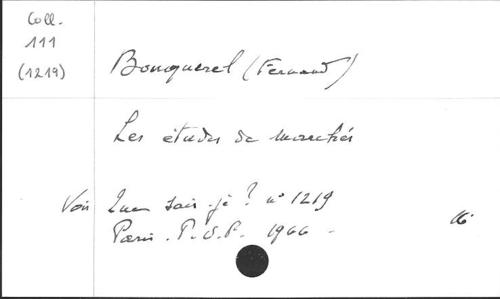 Coll.
111
(1219)
Bouquerel (Fernand)
Les études de marchés
Voir Que sais-je ? n° 1219
Paris. P.U.F. 1966 -